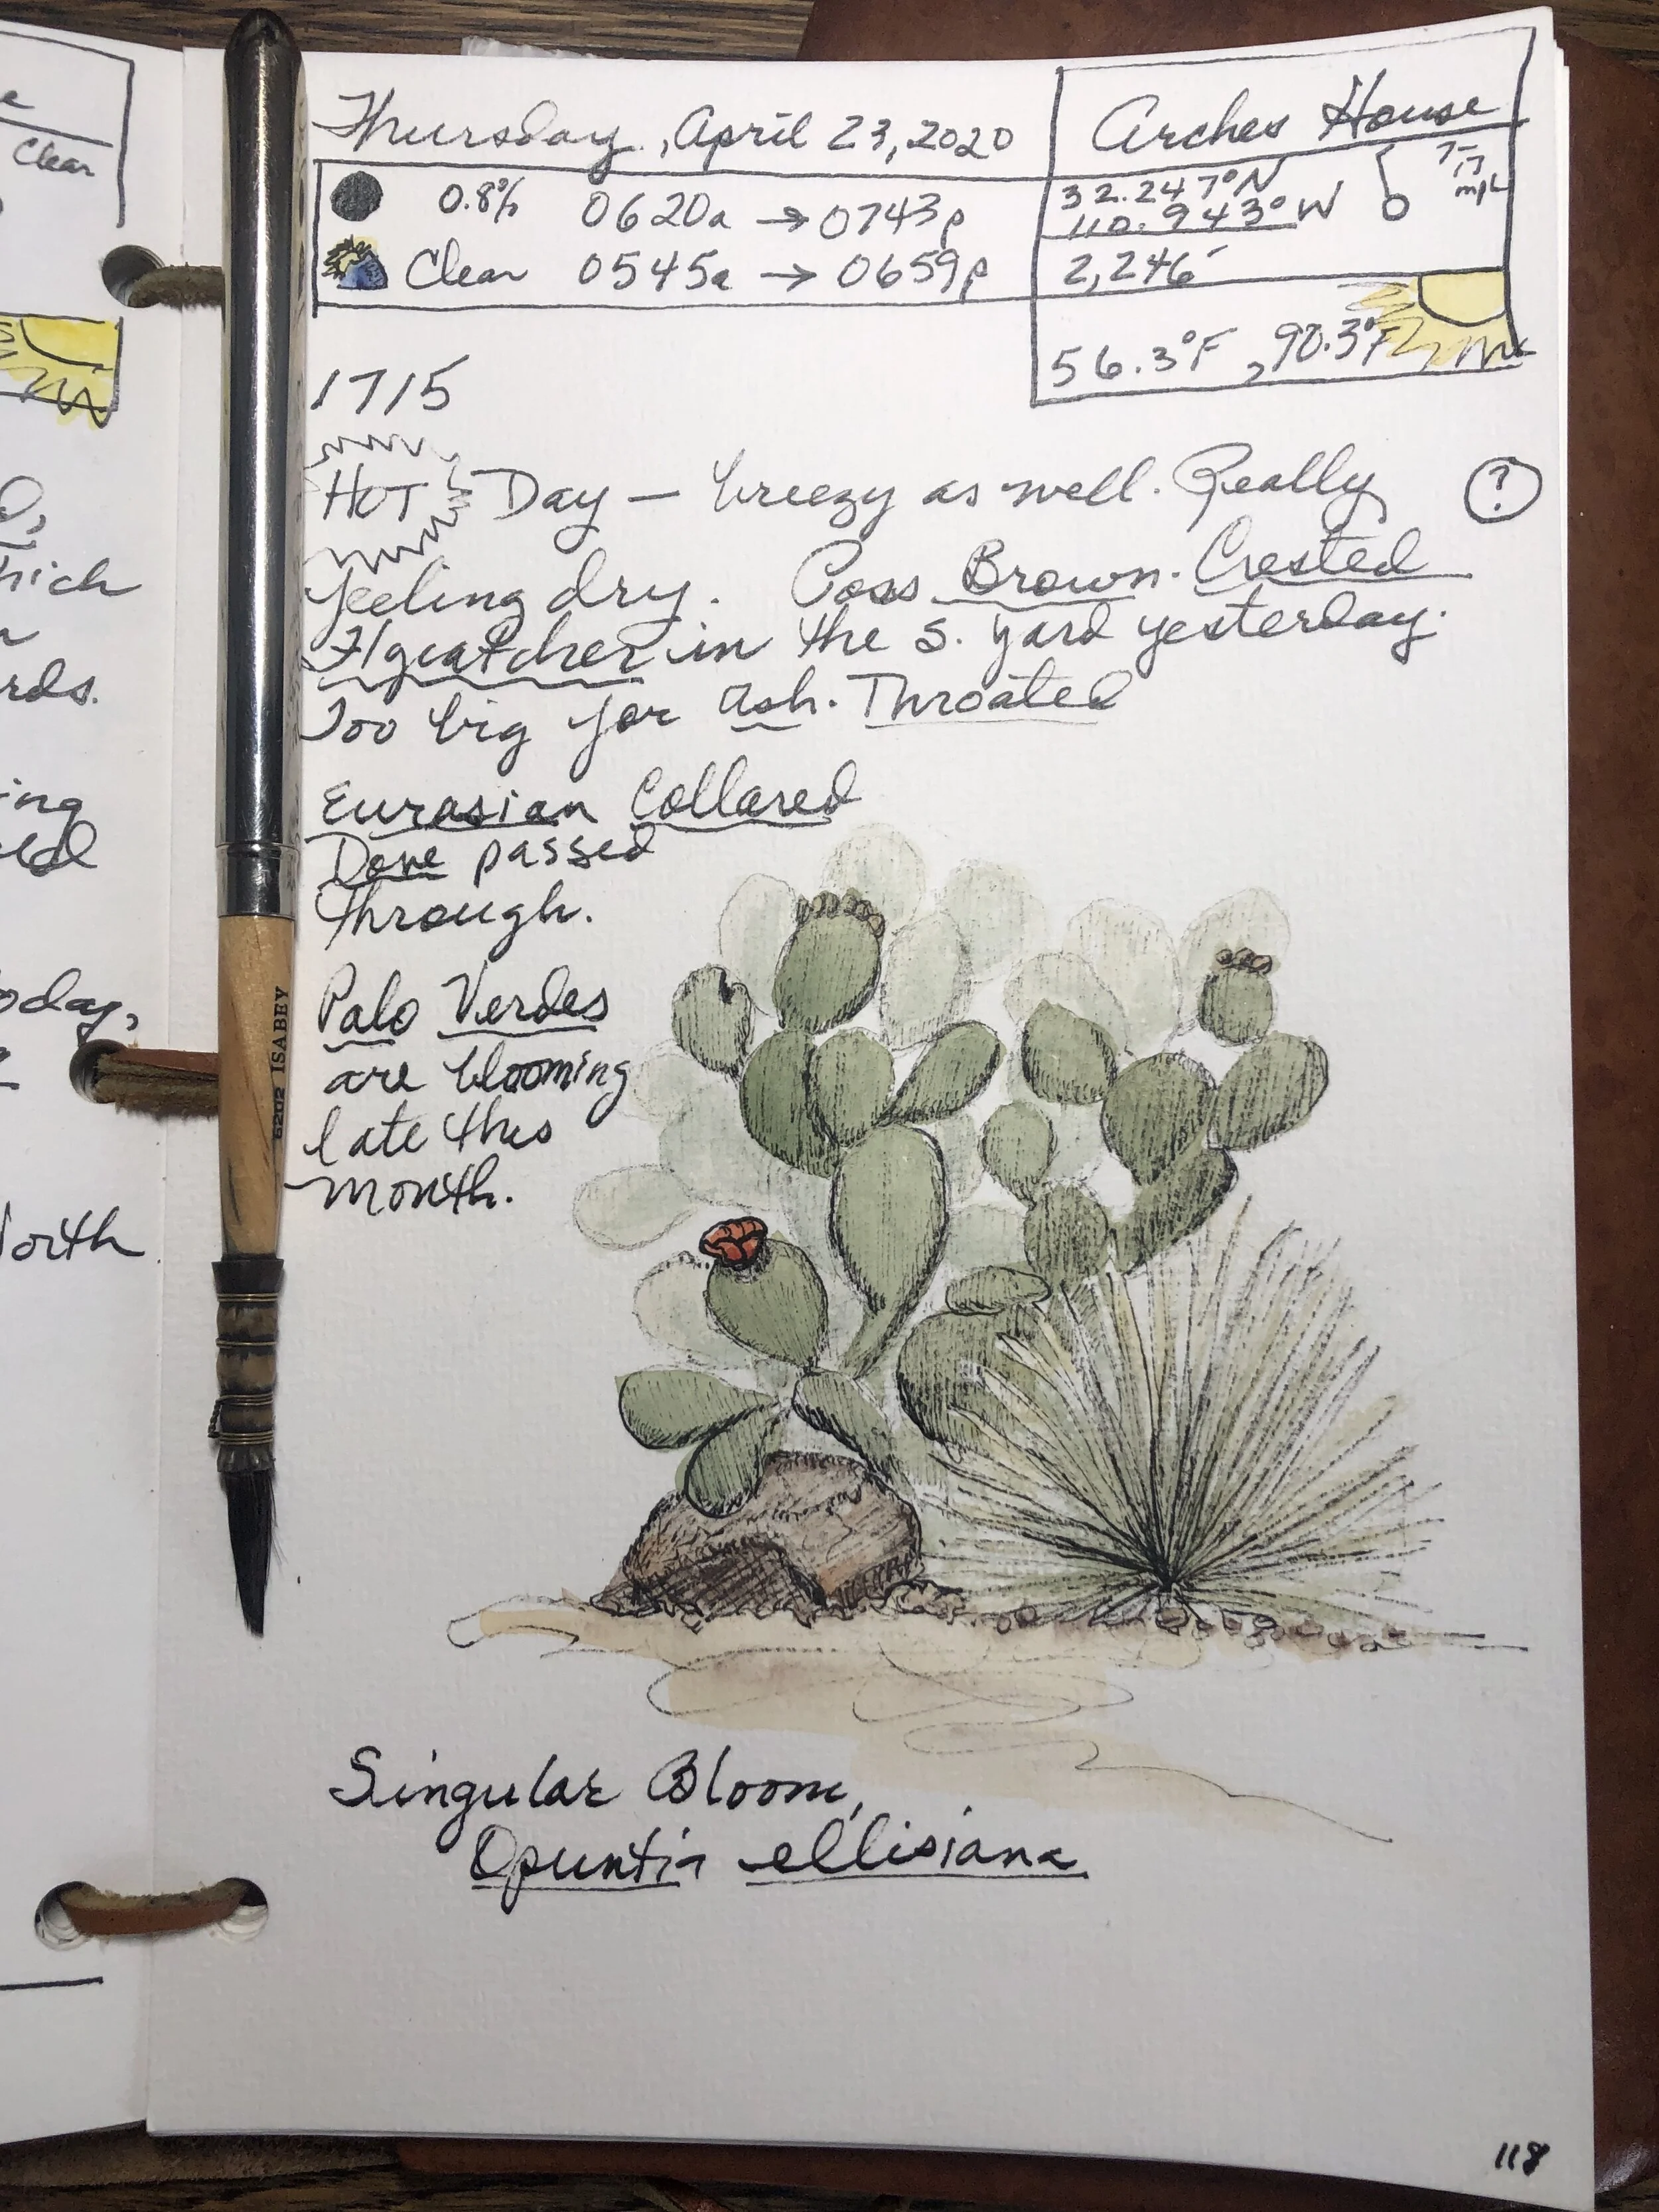 e
Clear
Thursday, April 23, 2020
Arches House
0.8% 0620a → 0743p
32.247°N
110.943°W
7-17
mph
Clear 0545a → 0659p
2,246'
56.3°F, 90.3°F
1715
HOT Day — breezy as well. Really
?
feeling dry. Poss Brown-Crested
Flycatcher in the S. yard yesterday.
Too big for Ash-Throated
Eurasian Collared
Dove passed
through.
Palo Verdes
are blooming
late this
month.
hich
rds.
ing
oday,
North
6202 ISABEY
Singular Bloom,
Opuntia ellisiana
118